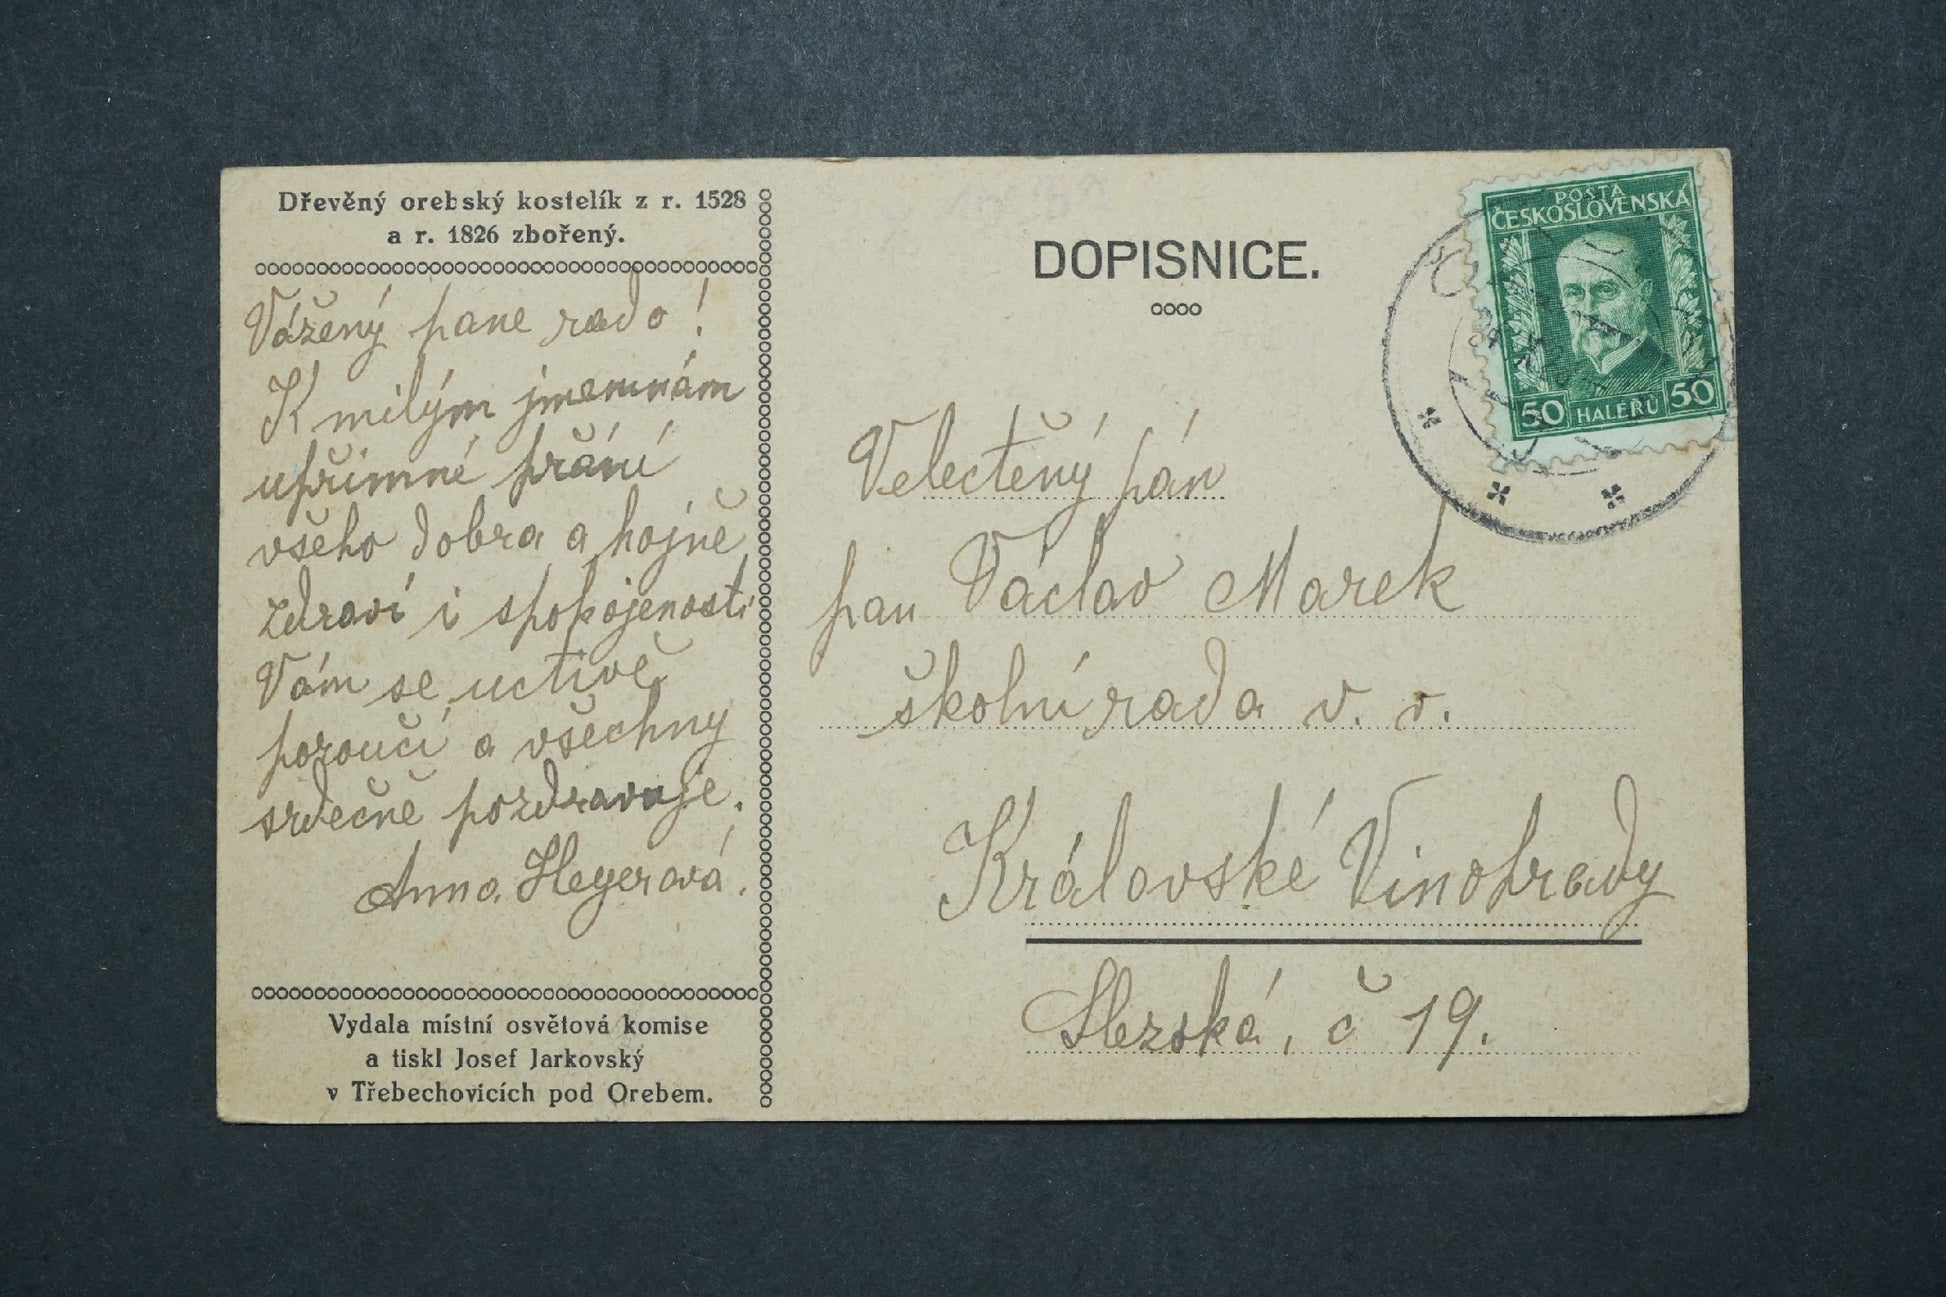 Dřevěný orebský kostelík z r. 1528
a r. 1826 zbořený.
Vážený pane rado!
K milým jmeninám
upřímné přání
všeho dobra a hojně
zdraví i spokojenosti
Vám se uctivě
poroučí a všechny
srdečně pozdravuje.
Anna Heyerová.
Vydala místní osvětová komise
a tiskl Josef Jarkovský
v Třebechovicích pod Orebem.
DOPISNICE.
POŠTA
ČESKOSLOVENSKÁ
50 HALÉŘŮ 50
Velectěný pán
pan Václav Marek
školní rada v. v.
Královské Vinohrady
Slezská, č 19.